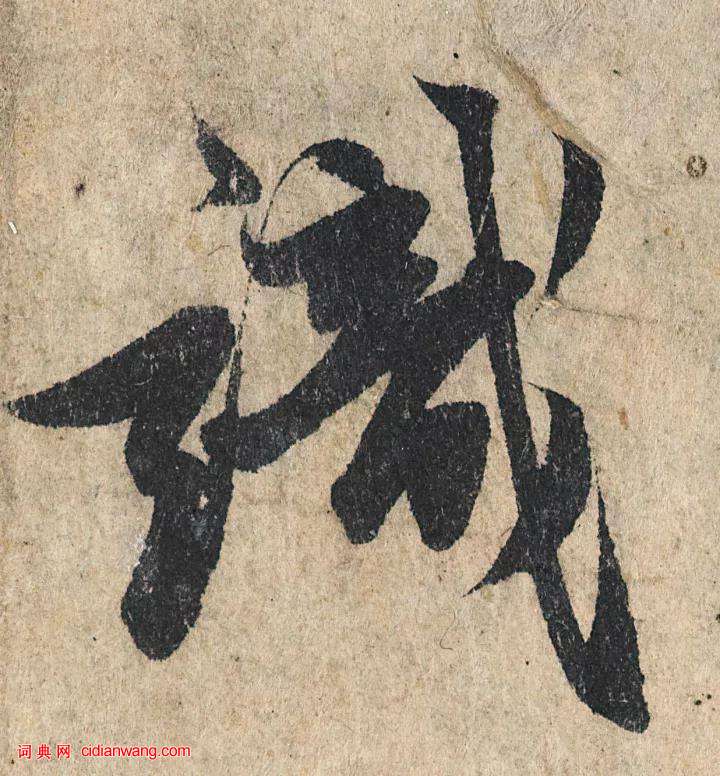 識
词典网 cidianwang.com